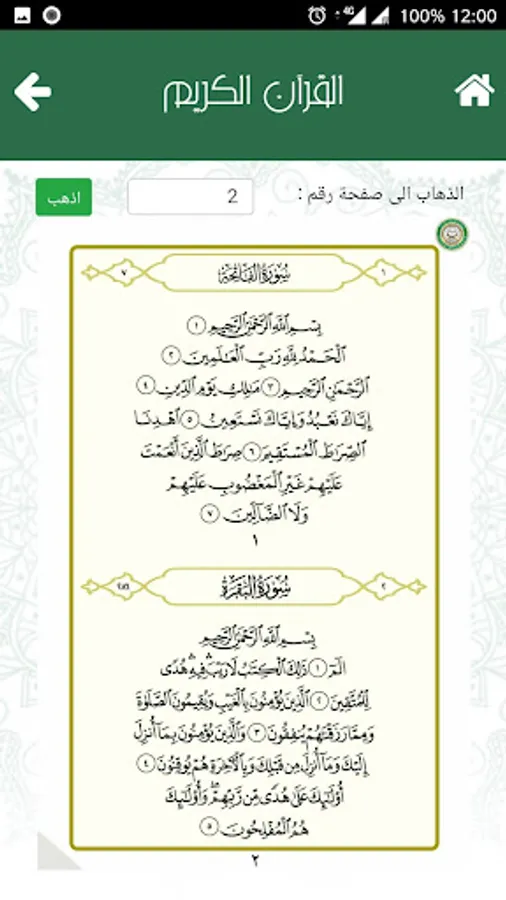 4G 100% 12:00
القرآن الكريم
الذهاب الى صفحة رقم : 2 اذهب
١ سُورَةُ الفَاتِحَةِ ٧
بِسْمِ اللَّهِ الرَّحْمَٰنِ الرَّحِيمِ ١
الْحَمْدُ لِلَّهِ رَبِّ الْعَالَمِينَ ٢
الرَّحْمَٰنِ الرَّحِيمِ ٣ مَالِكِ يَوْمِ الدِّينِ ٤
إِيَّاكَ نَعْبُدُ وَإِيَّاكَ نَسْتَعِينُ ٥ اهْدِنَا
الصِّرَاطَ الْمُسْتَقِيمَ ٦ صِرَاطَ الَّذِينَ أَنْعَمْتَ
عَلَيْهِمْ غَيْرِ الْمَغْضُوبِ عَلَيْهِمْ
وَلَا الضَّالِّينَ ٧
١
٢ سُورَةُ البَقَرَةِ ٢٨٦
بِسْمِ اللَّهِ الرَّحْمَٰنِ الرَّحِيمِ
الٓمٓ ١ ذَٰلِكَ الْكِتَٰبُ لَا رَيْبَ ۛ فِيهِ ۛ هُدًى
لِلْمُتَّقِينَ ٢ الَّذِينَ يُؤْمِنُونَ بِالْغَيْبِ وَيُقِيمُونَ الصَّلَوٰةَ
وَمِمَّا رَزَقْنَٰهُمْ يُنْفِقُونَ ٣ وَالَّذِينَ يُؤْمِنُونَ بِمَا أُنْزِلَ
إِلَيْكَ وَمَا أُنْزِلَ مِنْ قَبْلِكَ وَبِالْآخِرَةِ هُمْ يُوقِنُونَ ٤
أُولَٰئِكَ عَلَىٰ هُدًى مِنْ رَبِّهِمْ ۖ وَأُولَٰئِكَ
هُمُ الْمُفْلِحُونَ ٥
٢